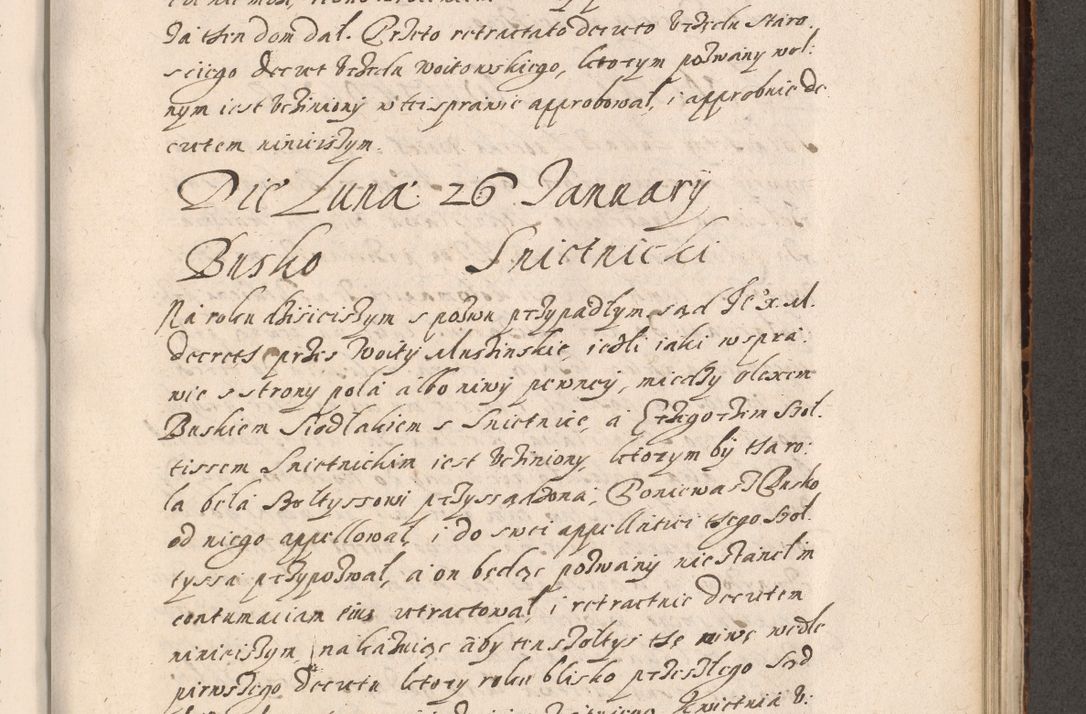 za then dom dał. Przeto retractato decreto Vrzędu Staro
sciiego decret Vrzędu Woitowskiego, ktorym pozwany wol:
nym iest vcziniony w tei sprawie approbował, i approbuie de
cretem ninieiszym.
Die Lunæ 26 Januarÿ
Busko Snietnicki
Na roku dzisieiszym s pozwu przypadłym sąd Je° X. M.
decrets przes Woity Muszinskie, iesli iaki w spra:
wie s strony pola albo niwy pewney, miedzy Olexem
Buskiem Siodlakiem s Snietnice, a Hrzegorzem Szol.
tissem Snietnickim iest vcziniony, ktorym by tha ro:
la bela Szoltyssowi przyssądzona; Poniewasz Busko
od niego appellował, i do swei appellatiei thego Szol.
tyssa przypozwał, a on będąc pozwany nie stanel in
contumaciam eius retractował, i retractuie decretem
ninieiszym nakazuiąc aby ten szoltys thę niwę wedle
pirwszego decretu ktory roku blisko przeszlego Sąd